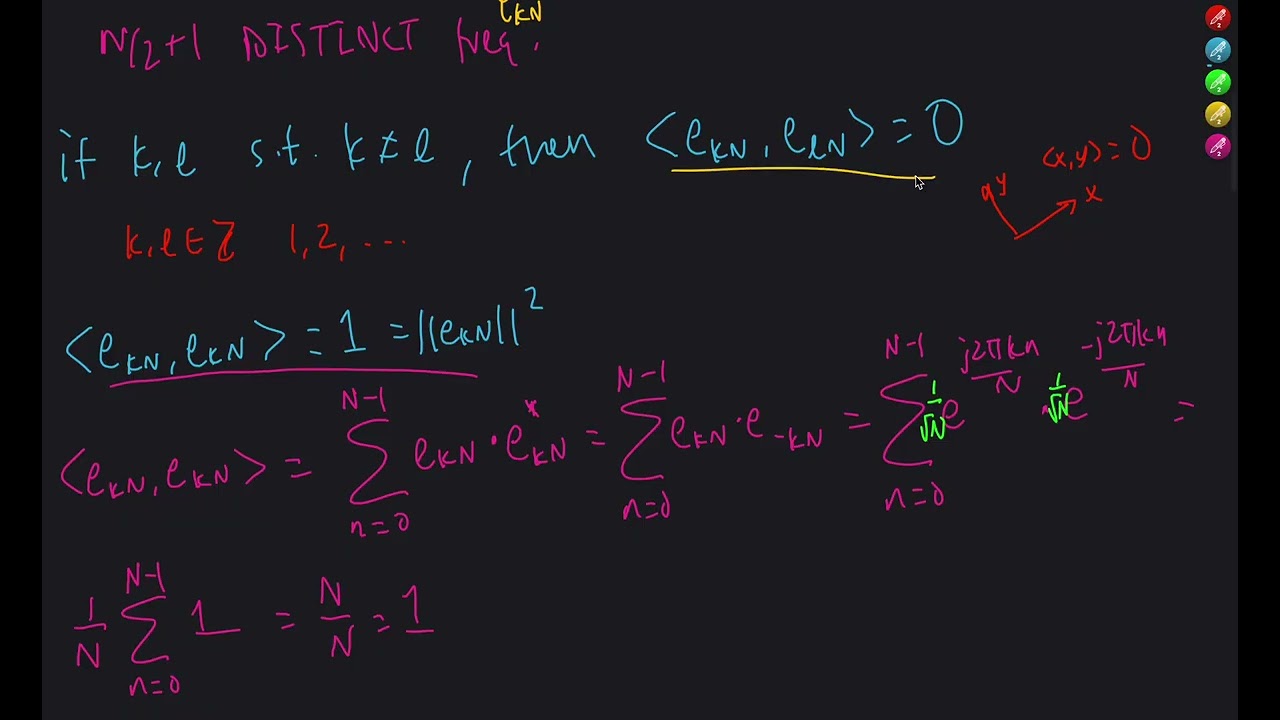 e_{kN}
N/2+1 DISTINCT freq.
if k,l s.t. k≠l, then <e_{kN}, e_{lN}> = 0
<x,y> = 0
y x
k,l ∈ Z 1,2, ...
<e_{kN}, e_{kN}> = 1 = ||e_{kN}||^2
<e_{kN}, e_{kN}> = \sum_{n=0}^{N-1} e_{kN} · e^*_{kN} = \sum_{n=0}^{N-1} e_{kN} · e_{-kN} = \sum_{n=0}^{N-1} \frac{1}{\sqrt{N}} e^{\frac{j2πkn}{N}} · \frac{1}{\sqrt{N}} e^{\frac{-j2πkn}{N}} =
\frac{1}{N} \sum_{n=0}^{N-1} 1 = \frac{N}{N} = 1
2
2
2
2
2